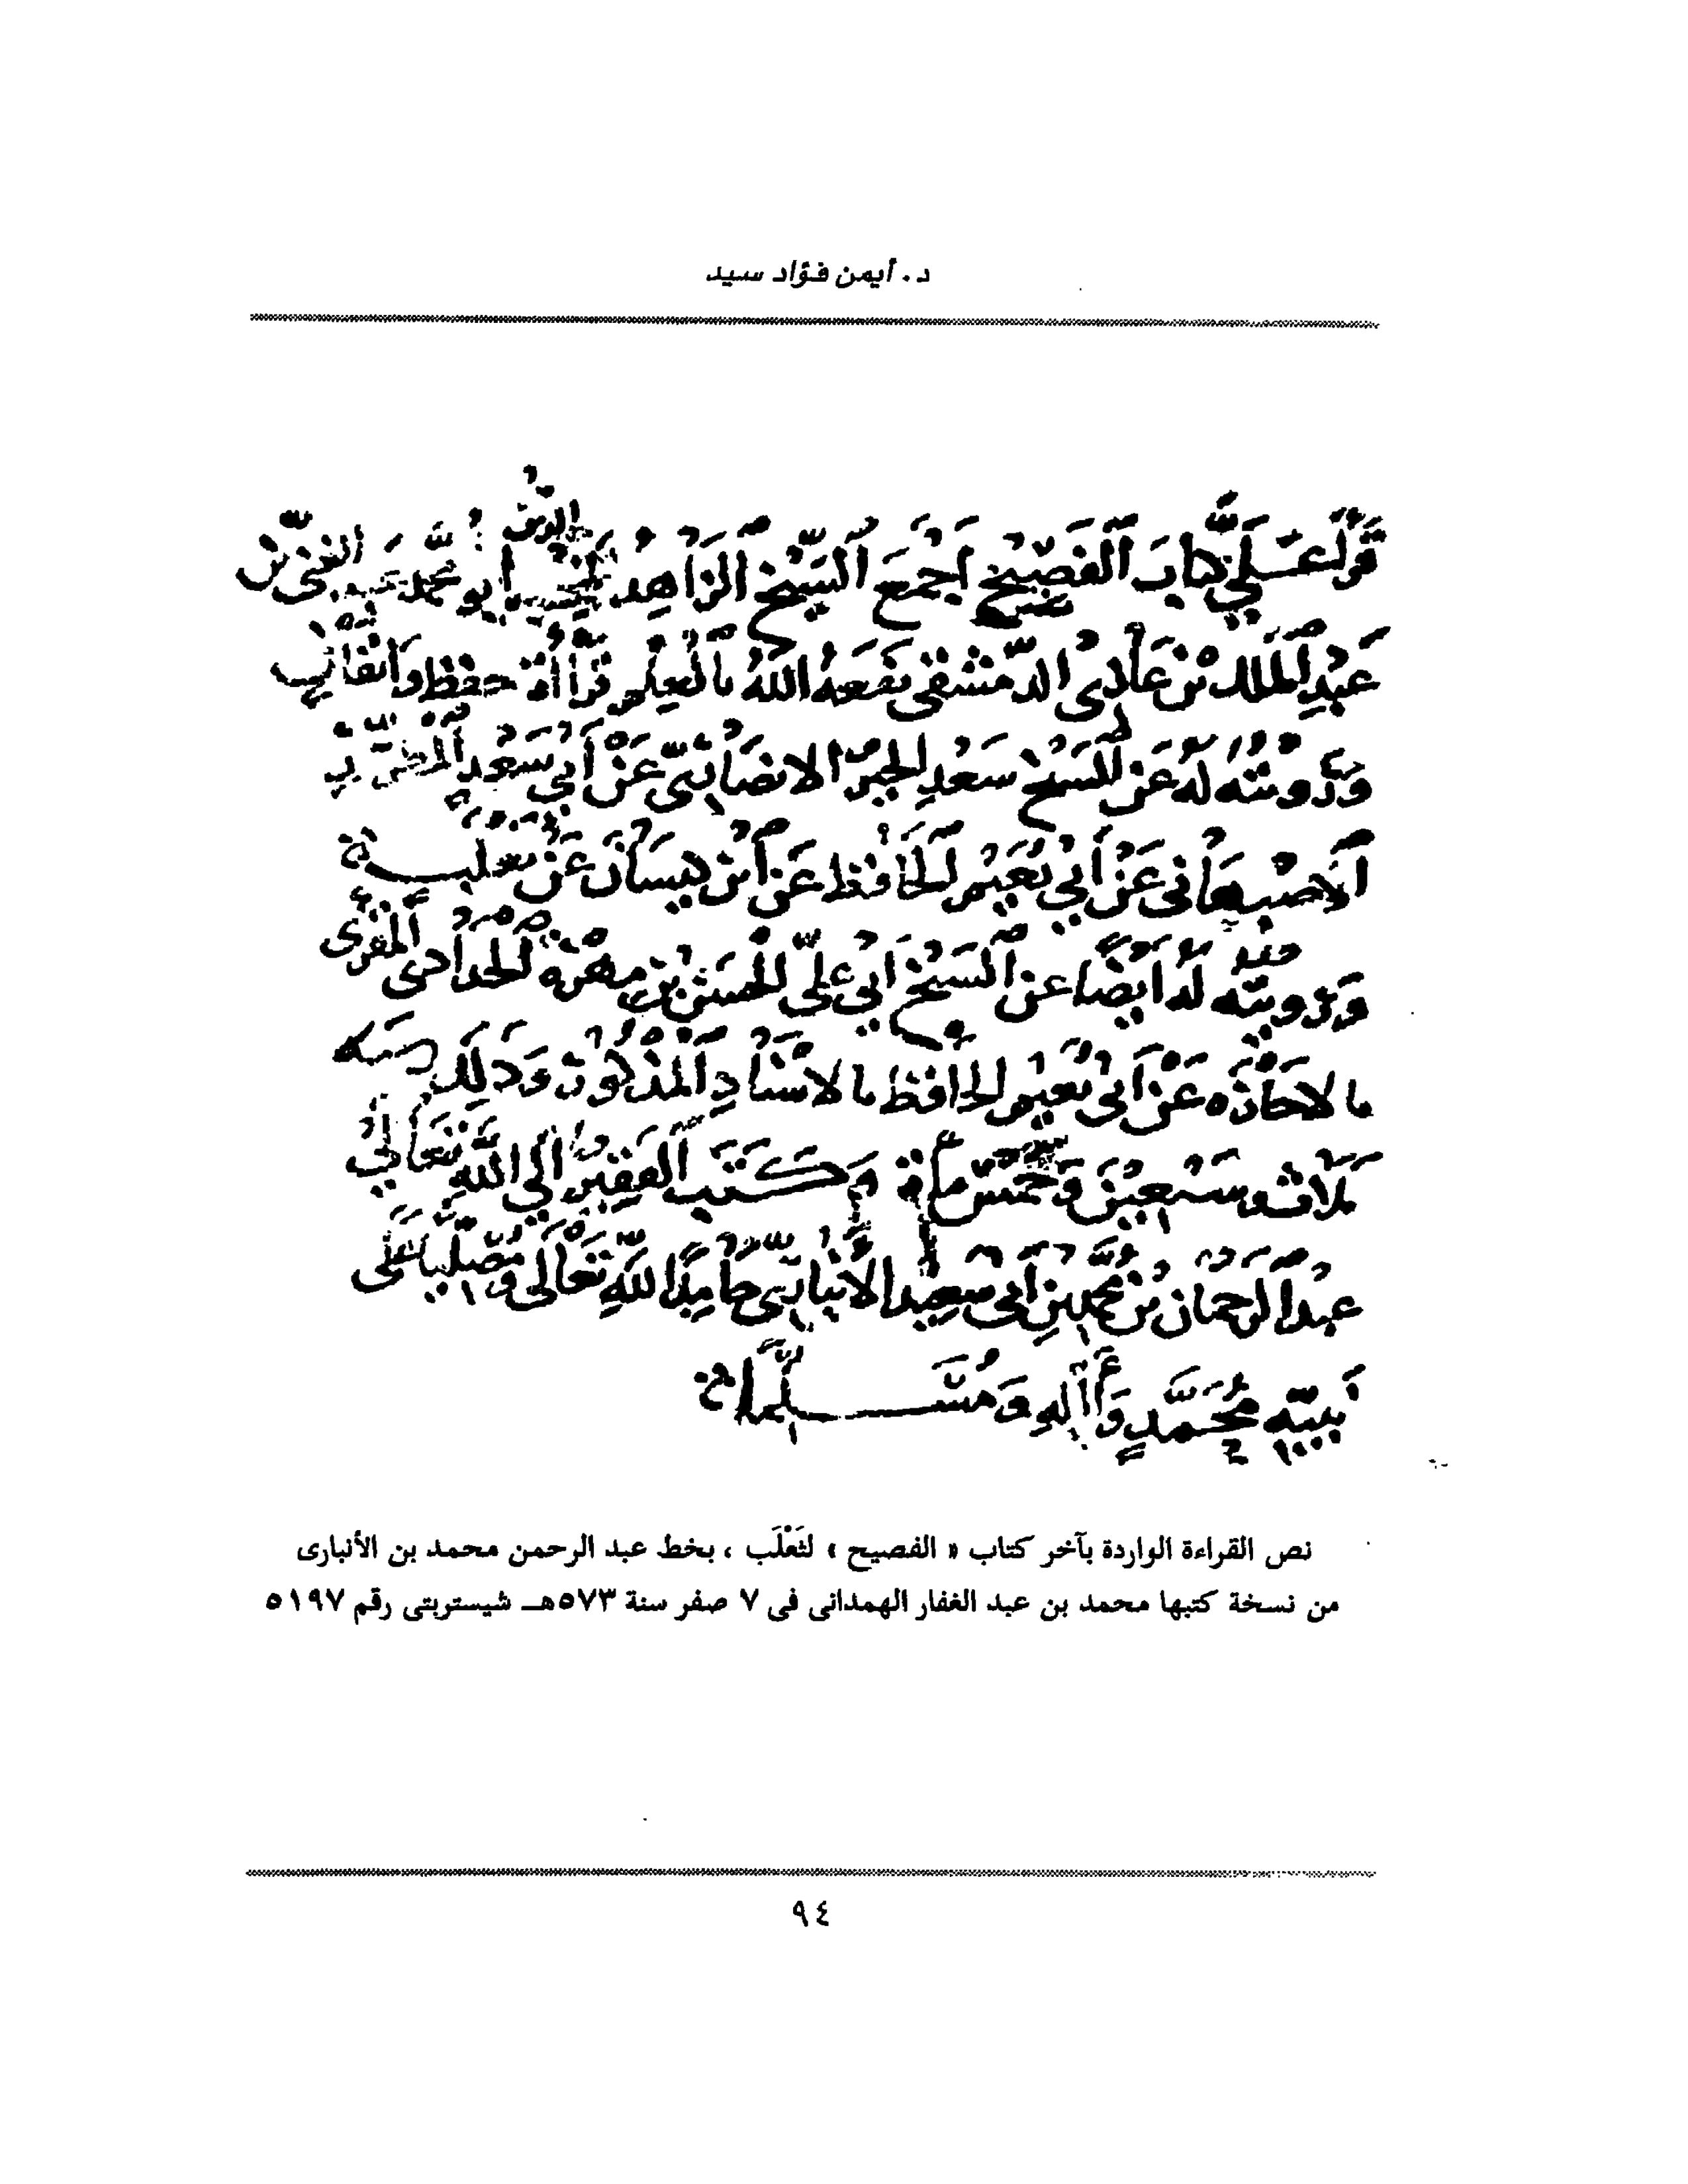 د. أيمن فؤاد سيد
قرأ عليّ كتاب الفصيح أجمع الشيخ الزاهد أبو محمد عبد الغني بن
عبد الملك بن عادى الدمشقي نفعه الله بالعلم قراءة حفظ واتقان
ورويته له عن الشيخ سعد الخير الانصاري عن أبي سعد المطرز
الاصبهاني عن أبي نعيم الحافظ عن ابن كيسان عن ثعلب
ورويته له أيضا عن الشيخ ابي علي الحسن بن مهرة الحدادى المقرى
بالاجازة عن أبي نعيم الحافظ بالاسناد المذكور وذلك سنة
ثلاث وسبعين وخمس مائة وكتب الفقير إلى الله تعالى
عبد الرحمان بن محمد بن أبي سعيد الأنباري حامدا لله تعالى ومصليا على
نبيه محمد وآله ومسلما
نص القراءة الواردة بآخر كتاب « الفصيح » لثَعْلَب ، بخط عبد الرحمن محمد بن الأنبارى
من نسخة كتبها محمد بن عبد الغفار الهمدانى فى ٧ صفر سنة ٥٧٣هـ شيستربتى رقم ٥١٩٧
٩٤